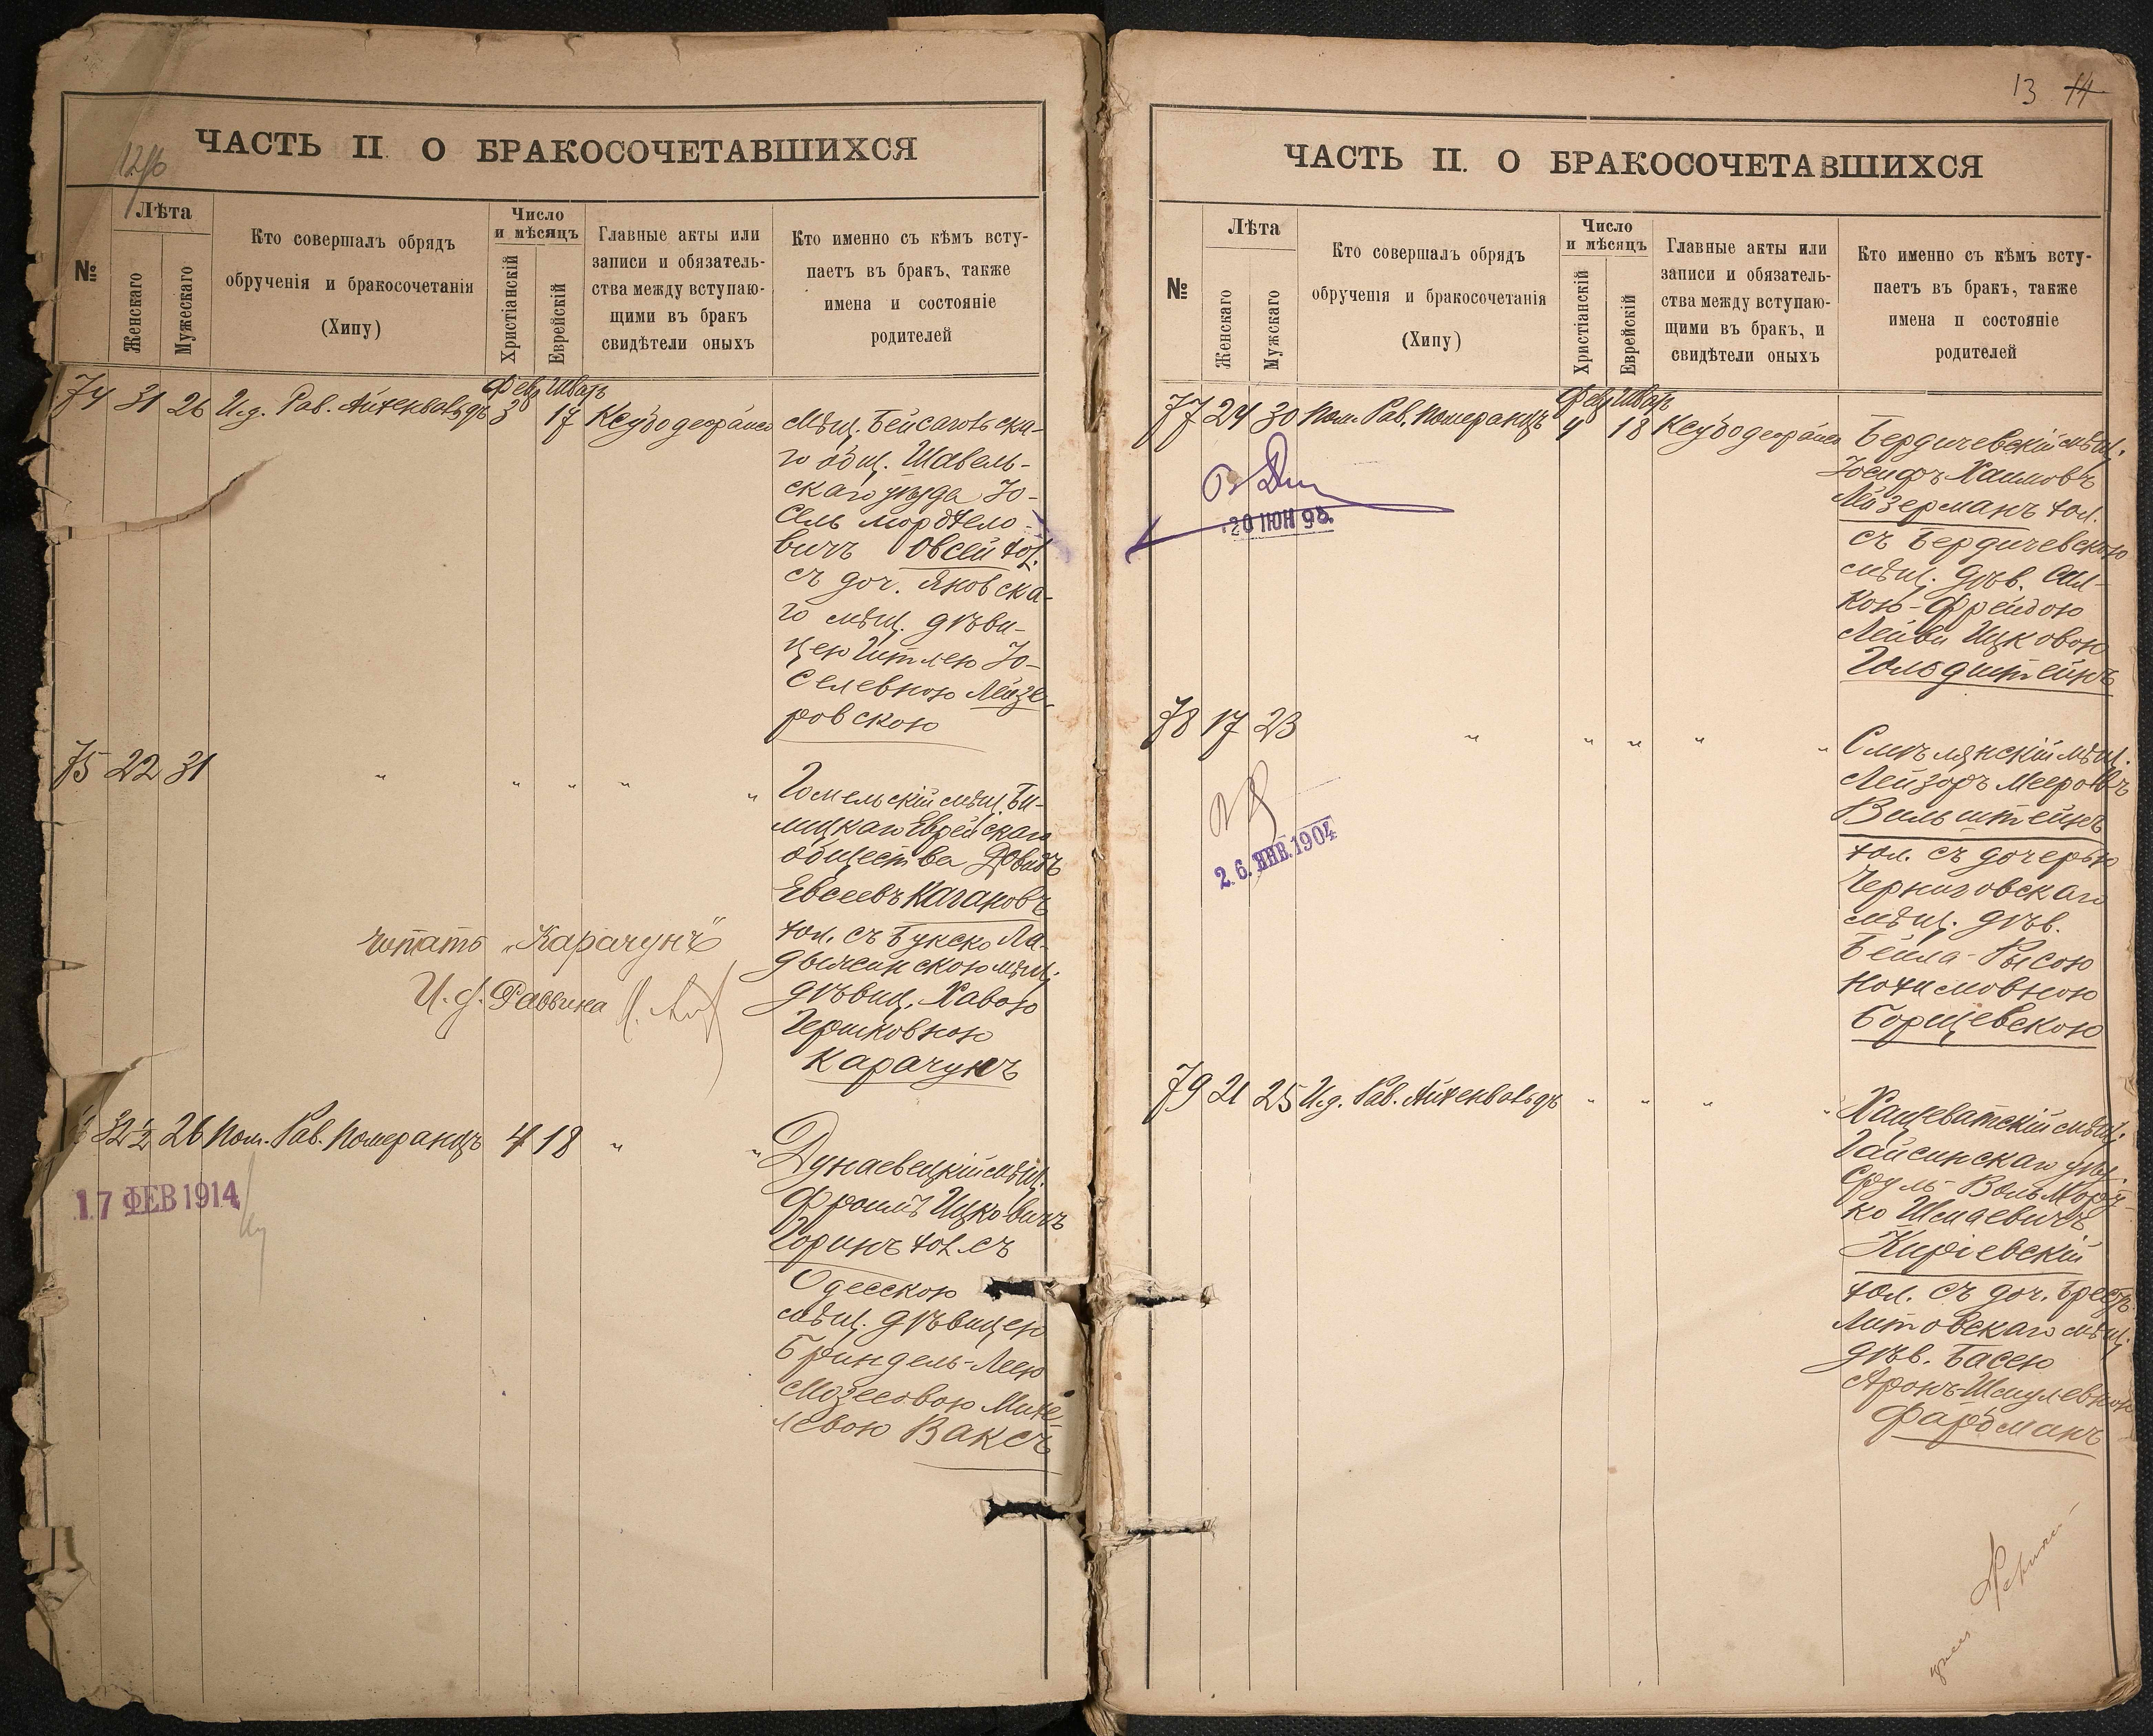 ЧАСТЬ II О БРАКОСОЧЕТАВШИХСЯ
№
Лѣта
Женскаго
Мужескаго
Кто совершалъ обрядъ
обрученія и бракосочетанія
(Хипу)
Число
и мѣсяцъ
Христіанскій
Еврейскій
Главные акты или
записи и обязатель-
ства между вступаю-
щими въ бракъ
свидѣтели оныхъ
Кто именно съ кѣмъ всту-
паетъ въ бракъ, также
имена и состояніе
родителей
Фев. Шватъ
74 31 26 И.д. Рав. Айхенвальдъ 3 17
Мѣщ. Бейсагольска-
го общ. Шавель-
скаго уѣзда Іо-
сель Мордхело-
вичъ Овсей хол.
съ доч. Яновска-
го мѣщ. дѣви-
цею Гитлею Іо-
селевною Лейзе-
ровскою
75 22 31 " " " " "
Гомельскій мѣщ. Бѣ-
лицкаго Еврейскаго
общества Довидъ
Евсеевъ Кагановъ
хол. съ Букско Ла-
дыжинскою мѣщ.
дѣвиц. Хавою
Гершковною
Карачунъ
читать „Карачунъ"
И. д. Раввина
32½ 26 Пом. Рав. Померанцъ 4 18 " "
Дунаевецкій мѣщ.
Фроимъ Ицковичъ
Горинъ хол. съ
Одесскою
мѣщ. дѣвицею
Бриндель-Леею
Мозесовою Михе-
левоюВаксъ
17 ФЕВ 1914
13 14
ЧАСТЬ II. О БРАКОСОЧЕТАВШИХСЯ
№
Лѣта
Женскаго
Мужскаго
Кто совершалъ обрядъ
обрученія и бракосочетанія
(Хипу)
Число
и мѣсяцъ
Христіанскій
Еврейскій
Главные акты или
записи и обязатель-
ства между вступаю-
щими въ бракъ, и
свидѣтели оныхъ
Кто именно съ кѣмъ всту-
паетъ въ бракъ, также
имена и состояніе
родителей
Фев. Шватъ
77 24 30 Пом. Рав. Померанцъ 4 18
Бердичевскій мѣщ.
Іосифъ Хаимовъ
Лейзерманъ хол.
съ Бердичевскою
мѣщ. дѣв.
кою-Фрейдою
Лейви Ицковою
Гольдштейнъ
20 ІЮН 98.
78 17 23 " " " " "
Смѣлянскій мѣщ.
Лейзоръ Мееровъ
Вальштейнъ
хол. съ дочерью
Черниговскаго
мѣщ. дѣв.
Бейла-Рысою
Нохимовною
Борщевскою
26. ЯНВ. 1904
79 21 25 И.д. Рав. Айхенвальдъ " " " "
Хащеватскій мѣщ.
Гайсинскаго уѣз.
Сруль-Вольѣ Морд-
ко Шмаевичъ
Киріевскій
хол. съ доч. Брестъ-
Литовскаго мѣщ.
дѣв. Басею
Аронъ-Шмулевною
Фарбманъ